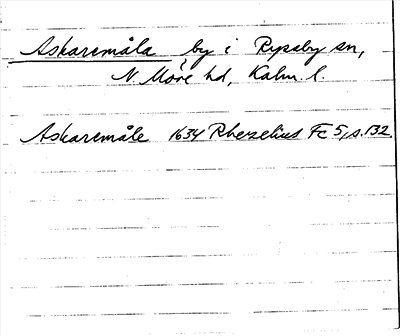 Askaremåla by i Ryssby sn,
N. Möre hd, Kalm. l.
Askaremåle 1634 Rhezelius Fc 5, s. 132